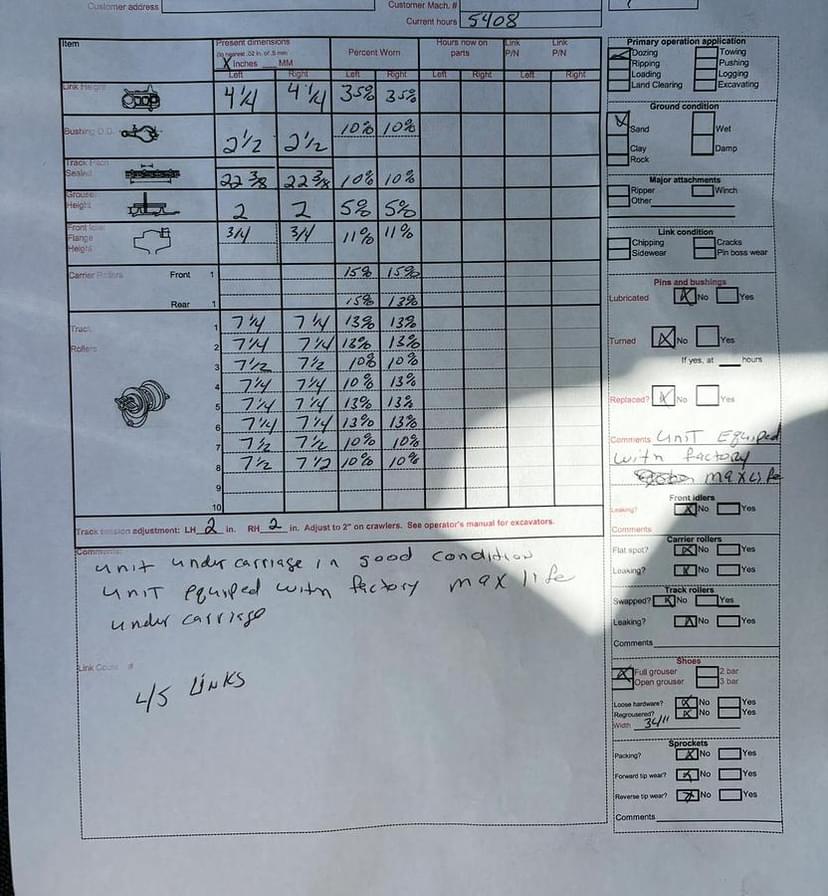 Customer address
Customer Mach. #
Current hours 5408
Item Present dimensions Percent Worn Hours now on Link Link
(to nearest .02 in. or .5 mm parts P/N P/N
X Inches ___ MM
Left Right Left Right Left Right Left Right
Link Height 4 1/4 4 1/4 35% 35%
Bushing O.D. 2 1/2 2 1/2 10% 10%
Track Pitch
Sealed 22 3/8 22 3/8 10% 10%
Grouser
Height 2 2 5% 5%
Front Idler 3/4 3/4 11% 11%
Flange
Height
Carrier Rollers Front 1 15% 15%
Rear 1 15% 13%
Track 1 7 1/4 7 1/4 13% 13%
Rollers 2 7 1/4 7 1/4 13% 13%
3 7 1/2 7 1/2 10% 10%
4 7 1/4 7 1/4 10% 13%
5 7 1/4 7 1/4 13% 13%
6 7 1/4 7 1/4 13% 13%
7 7 1/2 7 1/2 10% 10%
8 7 1/2 7 1/2 10% 10%
9
10
Track tension adjustment: LH 2 in. RH 2 in. Adjust to 2" on crawlers. See operator's manual for excavators.
Comments:
unit undercarriage in good condition
unit equiped with factory max life
under carriage
Link Count #
45 LINKS
Primary operation application
Dozing Towing
Ripping Pushing
Loading Logging
Land Clearing Excavating
Ground condition
Sand Wet
Clay Damp
Rock
Major attachments
Ripper Winch
Other
Link condition
Chipping Cracks
Sidewear Pin boss wear
Pins and bushings
Lubricated X No Yes
Turned X No Yes
If yes, at ___ hours
Replaced? X No Yes
Comments unit Equiped
with factory
max life
Front idlers
Leaking? X No Yes
Comments
Carrier rollers
Flat spot? X No Yes
Leaking? X No Yes
Track rollers
Swapped? X No Yes
Leaking? X No Yes
Comments
Shoes
X Full grouser 2 bar
Open grouser 3 bar
Loose hardware? X No Yes
Regrousered? X No Yes
Width 34"
Sprockets
Packing? X No Yes
Forward tip wear? X No Yes
Reverse tip wear? X No Yes
Comments